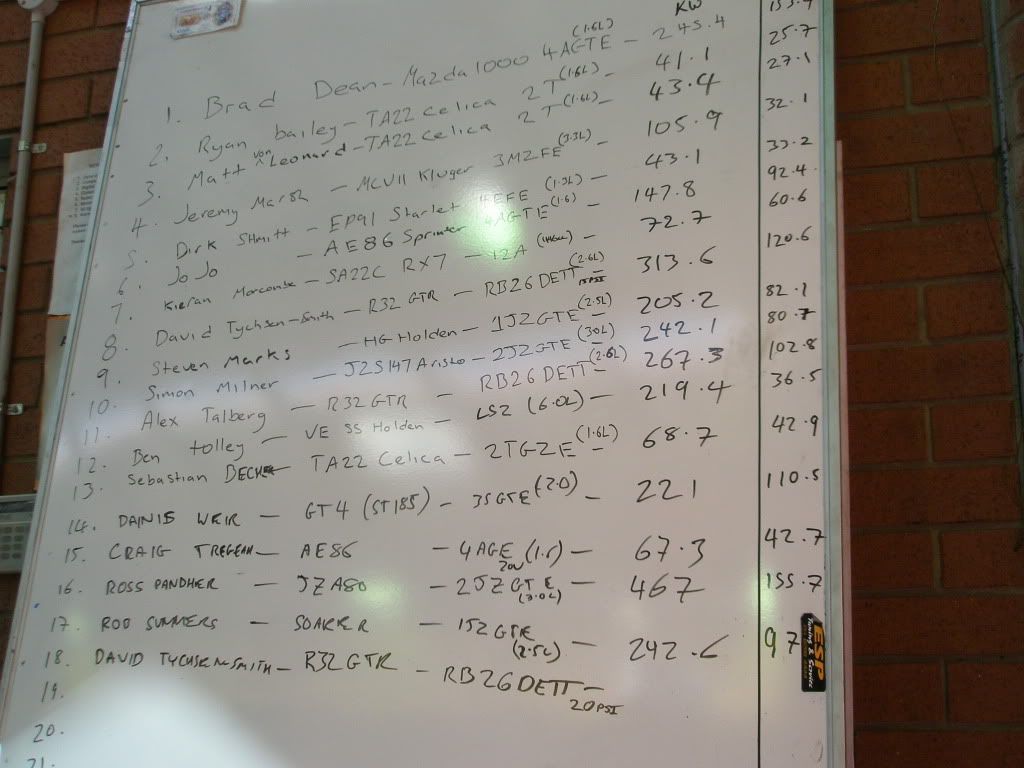 KW
1. Brad Dean – Mazda 1000 4AGTE (1.6L) – 245.4 153.4
2. Ryan bailey – TA22 Celica 2T (1.6L) – 41.1 25.7
3. Matt von Leonard – TA22 Celica 2T (1.6L) – 43.4 27.1
4. Jeremy Marsh – MCU11 Kluger 3MZFE (3.3L) – 105.9 32.1
5. Dirk Shmitt – EP91 Starlet 4EFE (1.3L) – 43.1 33.2
6. JoJo – AE86 Sprinter 4AGTE (1.6) – 147.8 92.4
7. Kieran – SA22C RX7 – 12A 72.7 60.6
8. David Tychsen-Smith – R32 GTR – RB26DETT (2.6L) 15PSI – 313.6 120.6
9. Steven Marks – HG Holden – 1JZGTE (2.5L) – 205.2 82.1
10. Simon Milner – JZS147 Aristo – 2JZGTE (3.0L) – 242.1 80.7
11. Alex Talberg – R32 GTR – RB26DETT (2.6L) – 267.3 102.8
12. Ben tolley – VE SS Holden – LS2 (6.0L) – 219.4 36.5
13. Sebastian – TA22 Celica – 2TGZE (1.6L) – 68.7 42.9
14. DAINIS WEIR – GT4 (ST185) – 3SGTE (2.0) – 221 110.5
15. CRAIG TREGEAN – AE86 – 4AGE 20V – 67.3 42.7
16. ROSS PANDHER – JZA80 – 2JZGTE (3.0L) – 467 155.7
17. ROD SUMMERS – SOARER – 1JZGTE (2.5L) – 242.6 97
18. DAVID TYCHSEN SMITH – R32 GTR – RB26DETT – 20PSI
19.
20.
21.
ESP
Tuning & Service